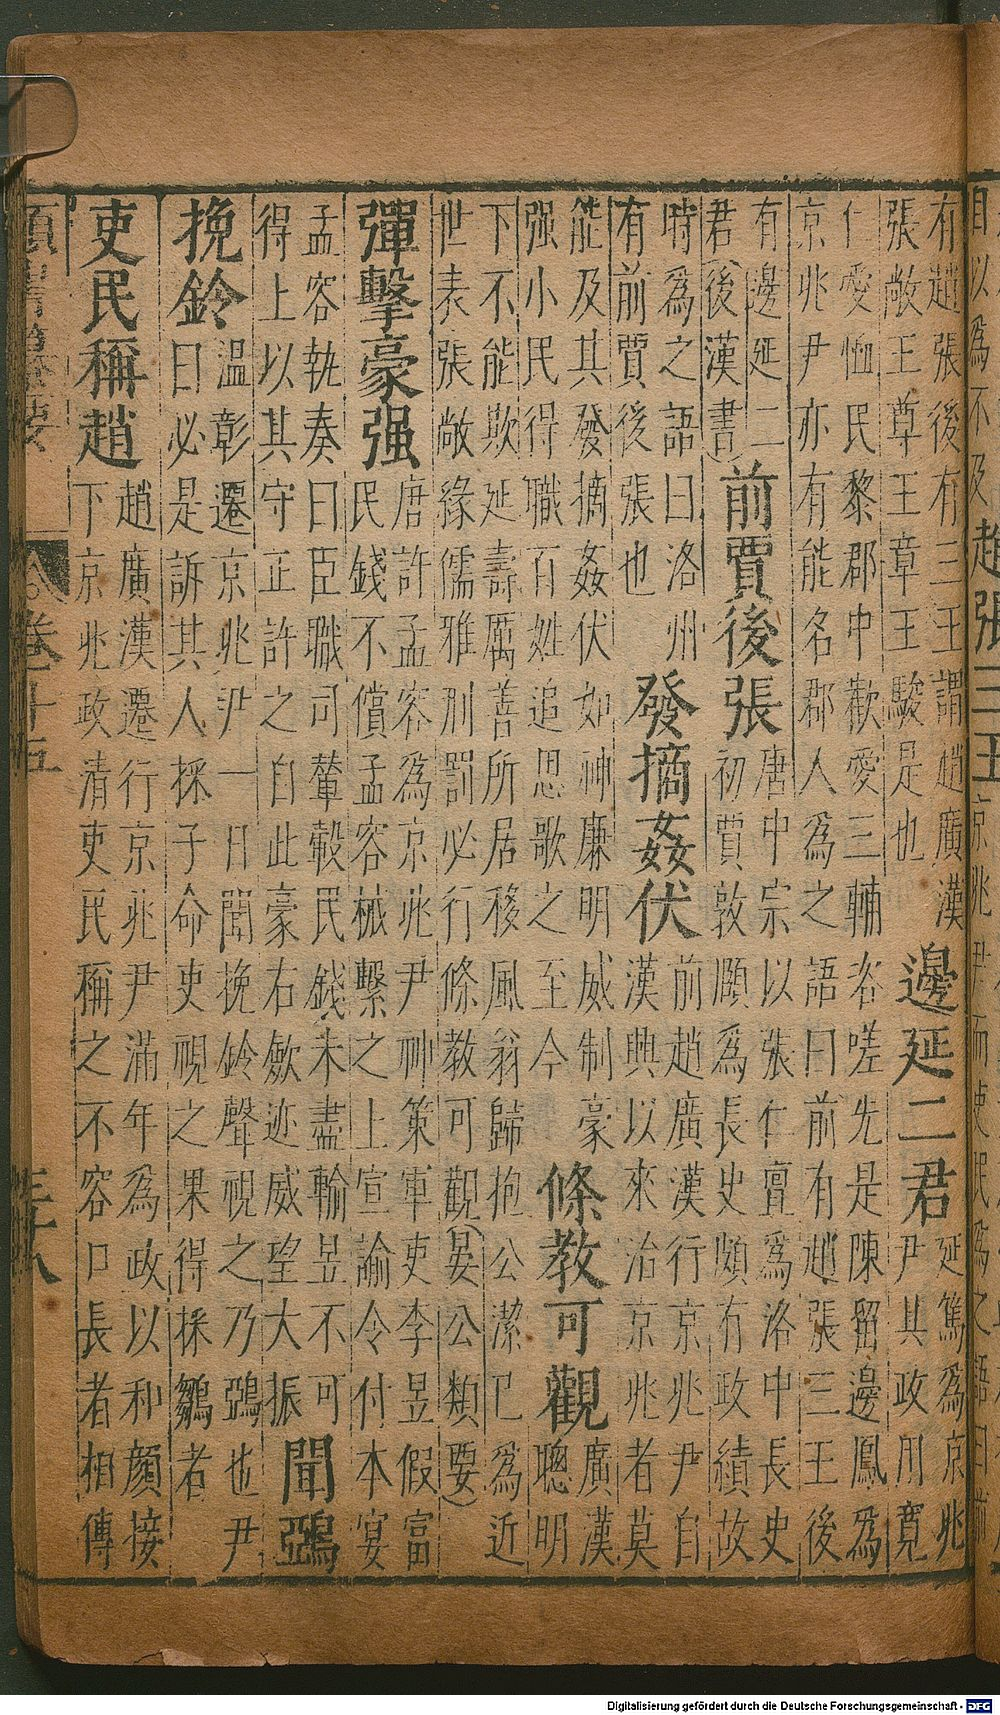 日以為不及
趙張三王
京兆尹而吏民為之語曰前
有趙張後有三王謂趙廣漢
張敞王尊王章王駿是也
邊延二君
延篤為京兆
尹其政用寬
仁愛恤民黎郡中歡愛三輔咨嗟先是陳留邊鳳為
京兆尹亦有能名郡人為之語曰前有趙張三王後
有邊延二
君(後漢書)
前賈後張
唐中宗以張仁亶為洛中長史
初賈敦頤為長史頗有政績故
時為之語曰洛州
有前賈後張也
發摘姦伏
前趙廣漢行京兆尹自
漢興以來治京兆者莫
能及其發摘姦伏如神廉明威制豪
强小民得職百姓追思歌之至今
條教可觀
廣漢
聰明
下不能欺延壽厲善所居移風翁歸抱公潔已為近
世表張敞緣儒雅刑罰必行條教可觀(晏公類要)
彈擊豪强
唐許孟容為京兆尹神策軍吏李昱假富
民錢不償孟容械繫之上宣諭令付本宴
孟容執奏曰臣職司輦轂民錢未盡輸昱不可
得上以其守正許之自此豪右歛迹威望大振
聞鵶
挽鈴
温彰遷京兆尹一日聞挽鈴聲視之乃鵶也尹
曰必是訴其人採子命吏視之果得採鶵者
吏民稱趙
趙廣漢遷行京兆尹滿年為政以和顏接
下京兆政清吏民稱之不容口長者相傳
卷十五
三十八
Digitalisierung gefördert durch die Deutsche Forschungsgemeinschaft - DFG